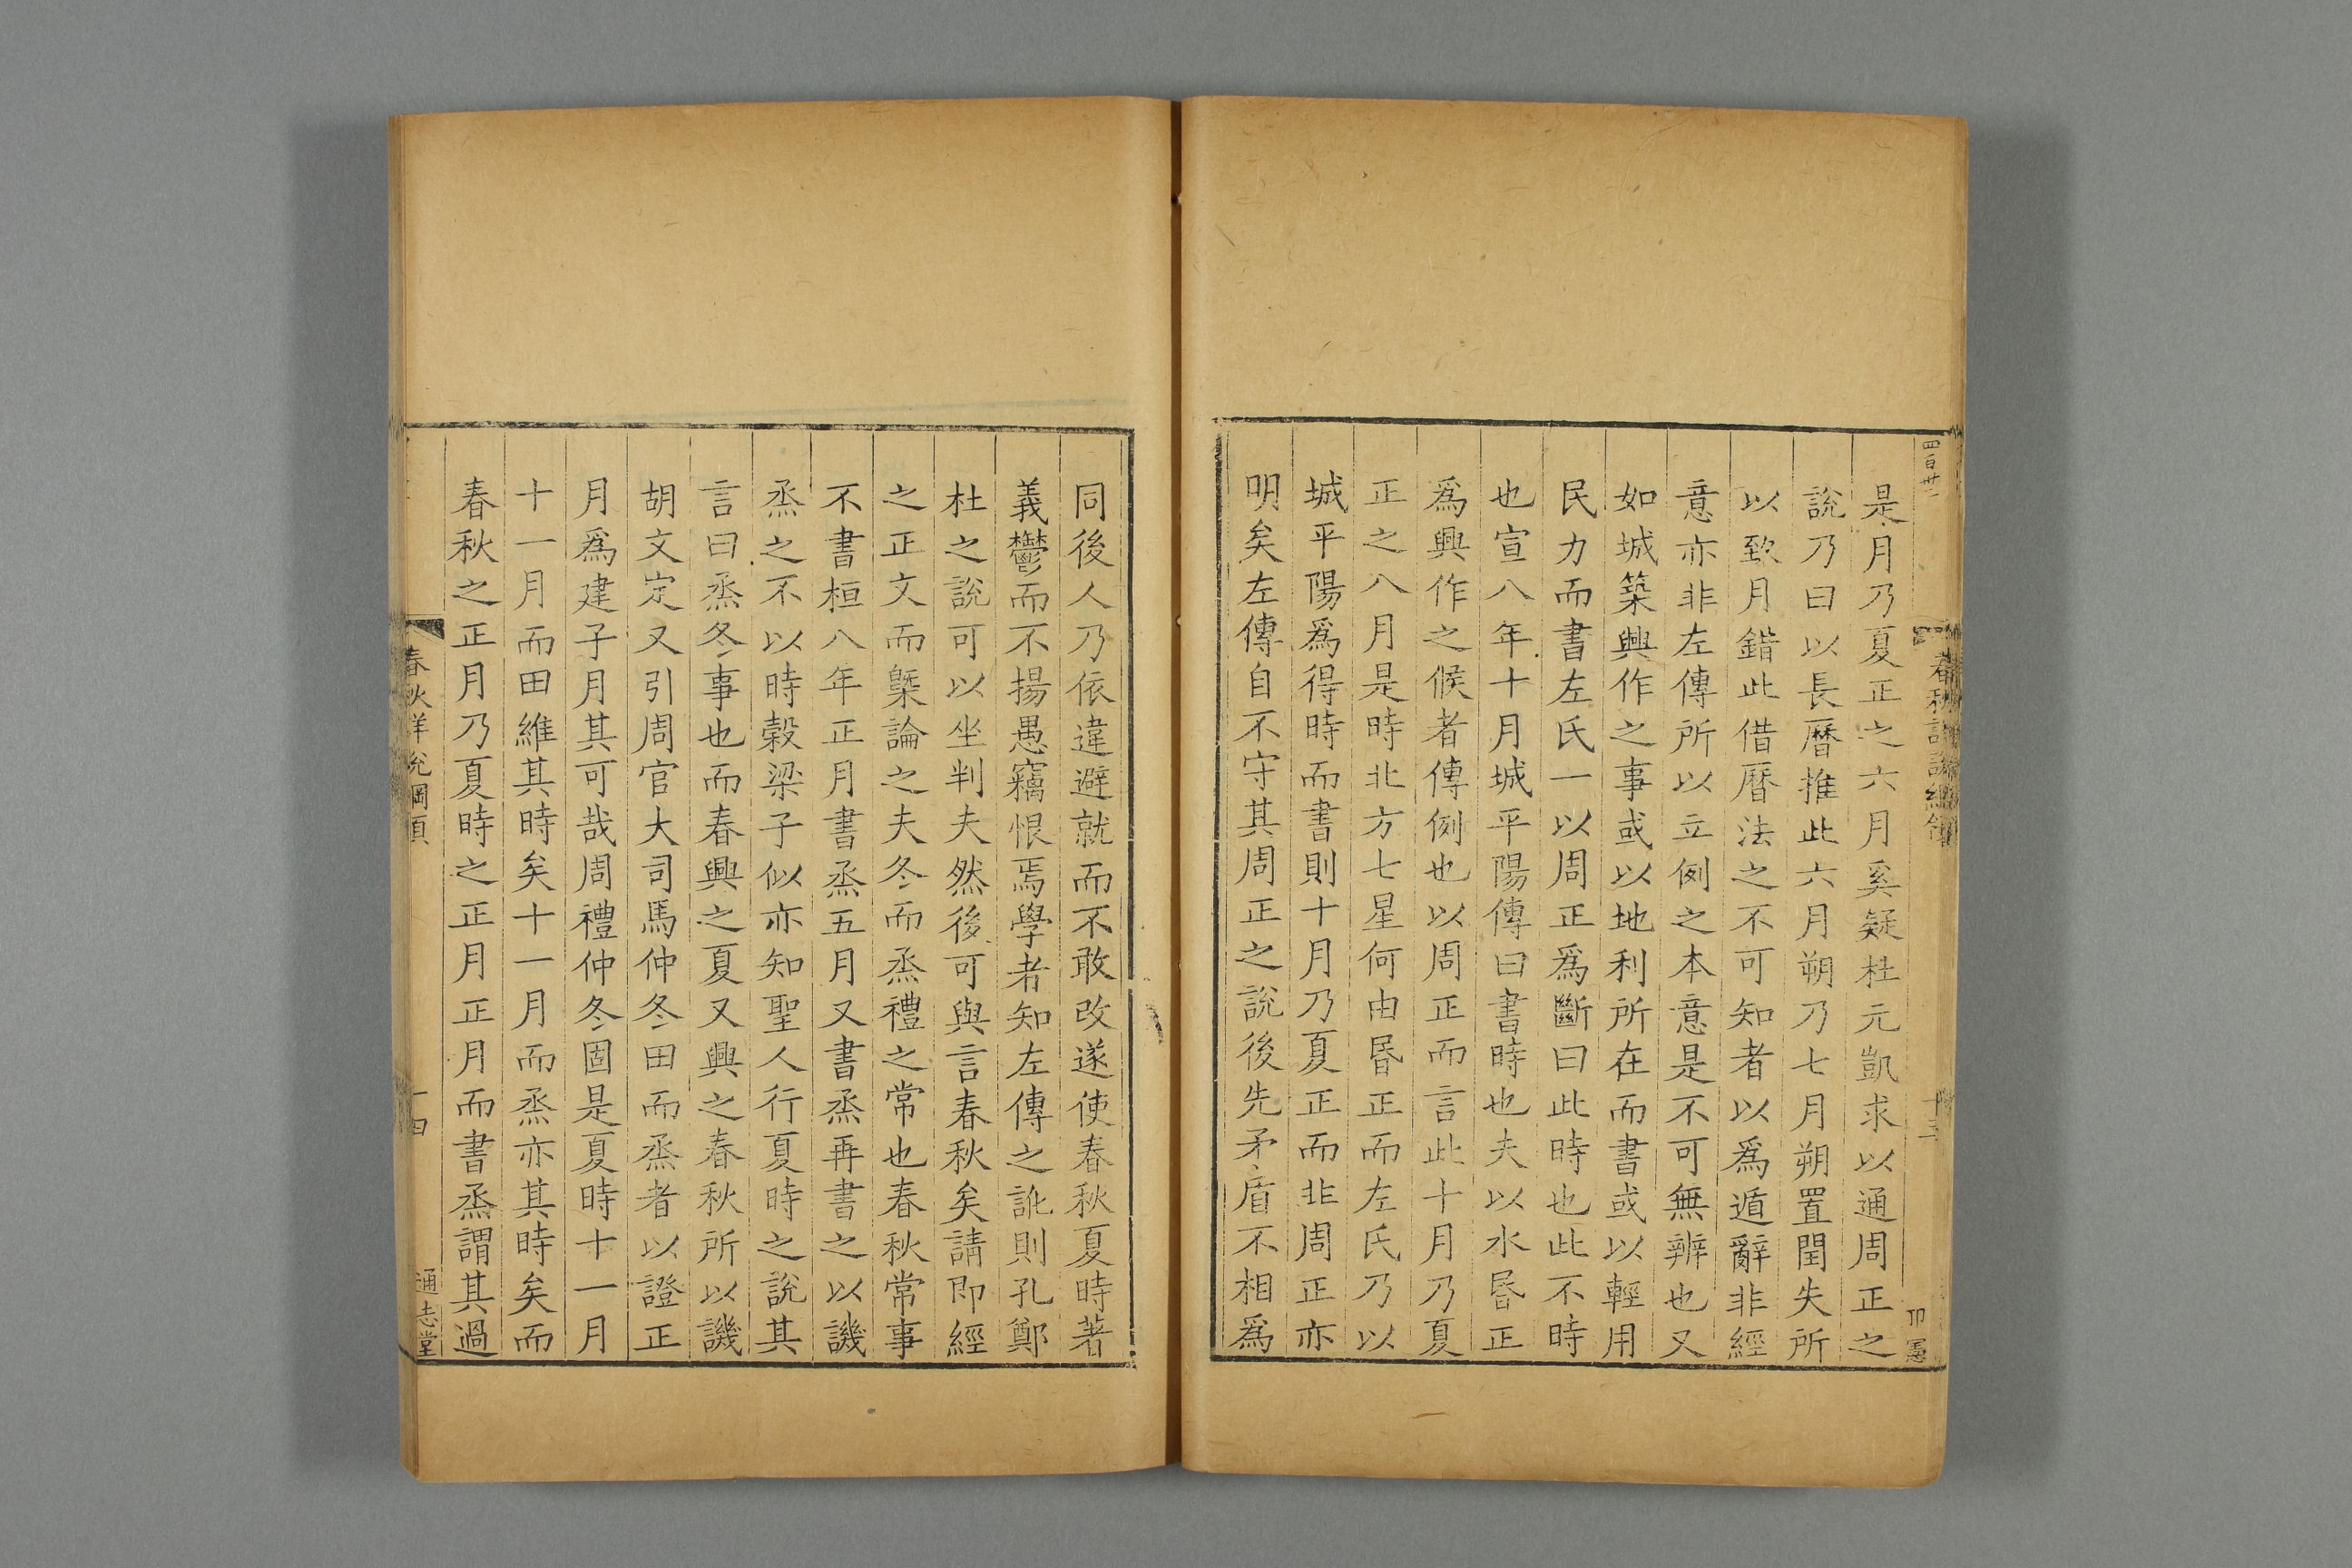 四百卅二
是月乃夏正之六月奚疑杜元凱求以通周正之
說乃曰以長曆推此六月朔乃七月朔置閏失所
以致月錯此借曆法之不可知者以爲遁辭非經
意亦非左傳所以立例之本意是不可無辨也又
如城築興作之事或以地利所在而書或以輕用
民力而書左氏一以周正爲斷曰此時也此不時
也宣八年十月城平陽傳曰書時也夫以水昏正
爲興作之候者傳例也以周正而言此十月乃夏
正之八月是時北方七星何由昏正而左氏乃以
城平陽爲得時而書則十月乃夏正而非周正亦
明矣左傳自不守其周正之說後先矛盾不相爲
同後人乃依違避就而不敢改遂使春秋夏時著
義鬱而不揚愚竊恨焉學者知左傳之訛則孔鄭
杜之說可以坐判夫然後可與言春秋矣請即經
之正文而槩論之夫冬而烝禮之常也春秋常事
不書桓八年正月書烝五月又書烝再書之以譏
烝之不以時榖梁子似亦知聖人行夏時之說其
言曰烝冬事也而春興之夏又興之春秋所以譏
胡文定又引周官大司馬仲冬田而烝者以證正
月爲建子月其可哉周禮仲冬固是夏時十一月
十一月而田維其時矣十一月而烝亦其時矣而
春秋之正月乃夏時之正月正月而書烝謂其過
春秋詳說綱領
十四
通志堂